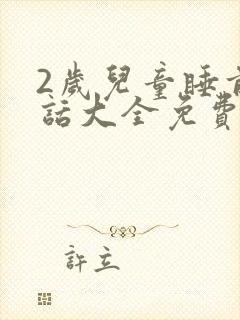 2歲兒童睡前
話大全免費
許立